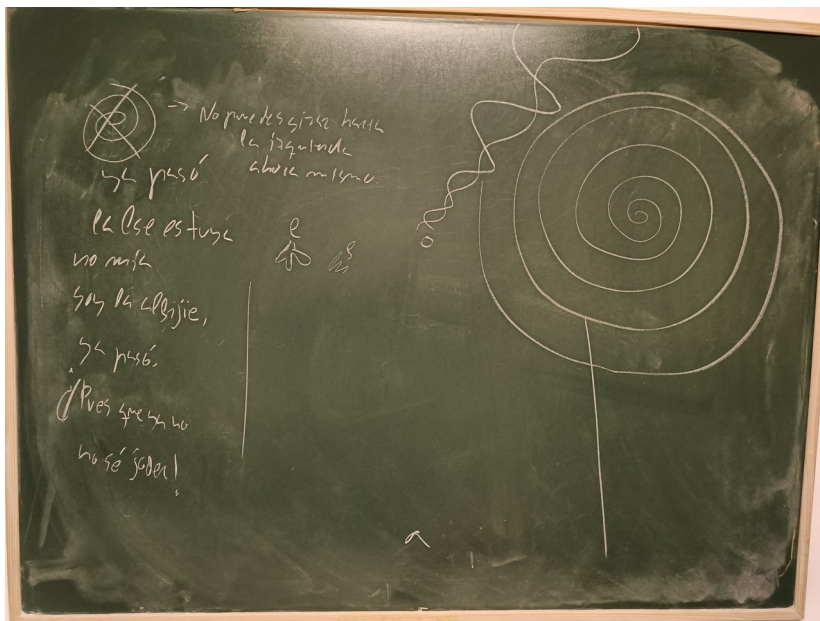 → No puedes girar hacia
la izquierda
ahora mismo.
ya pasó
la Cse es tuya
no mía
soy la
ya pasó.
¡Pues que ya no
no sé joder!